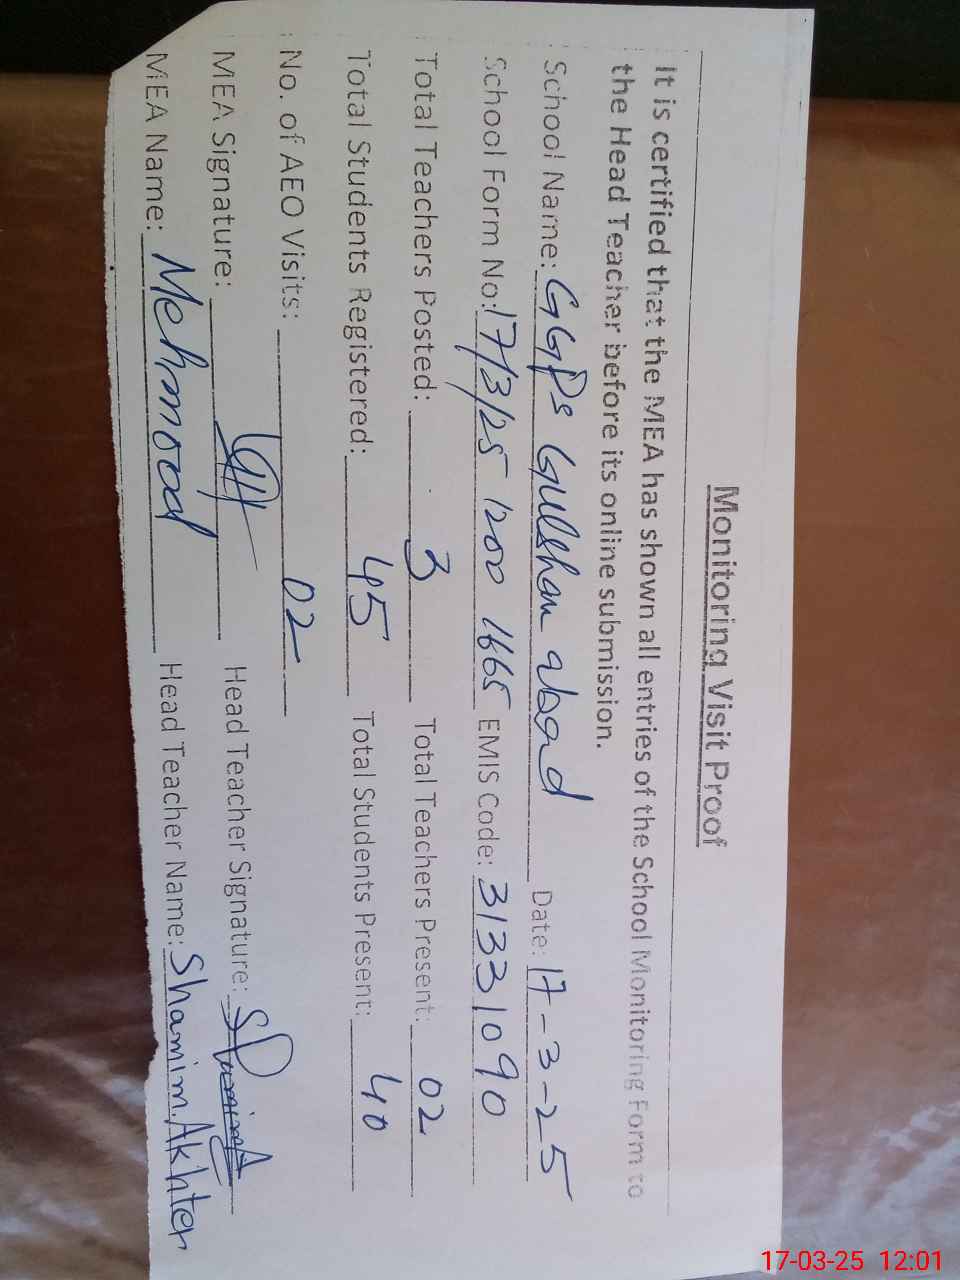 Monitoring Visit Proof
It is certified that the MEA has shown all entries of the School Monitoring Form to
the Head Teacher before its online submission.
School Name: GGPS Gulshan abad Date: 17-3-25
School Form No: 17/3/25 1200 1665 EMIS Code: 31331090
Total Teachers Posted: 3 Total Teachers Present: 02
Total Students Registered: 45 Total Students Present: 40
No. of AEO Visits: 02
MEA Signature: Head Teacher Signature:
MEA Name: Mehmood Head Teacher Name: Shamim.Akhter
17-03-25 12:01